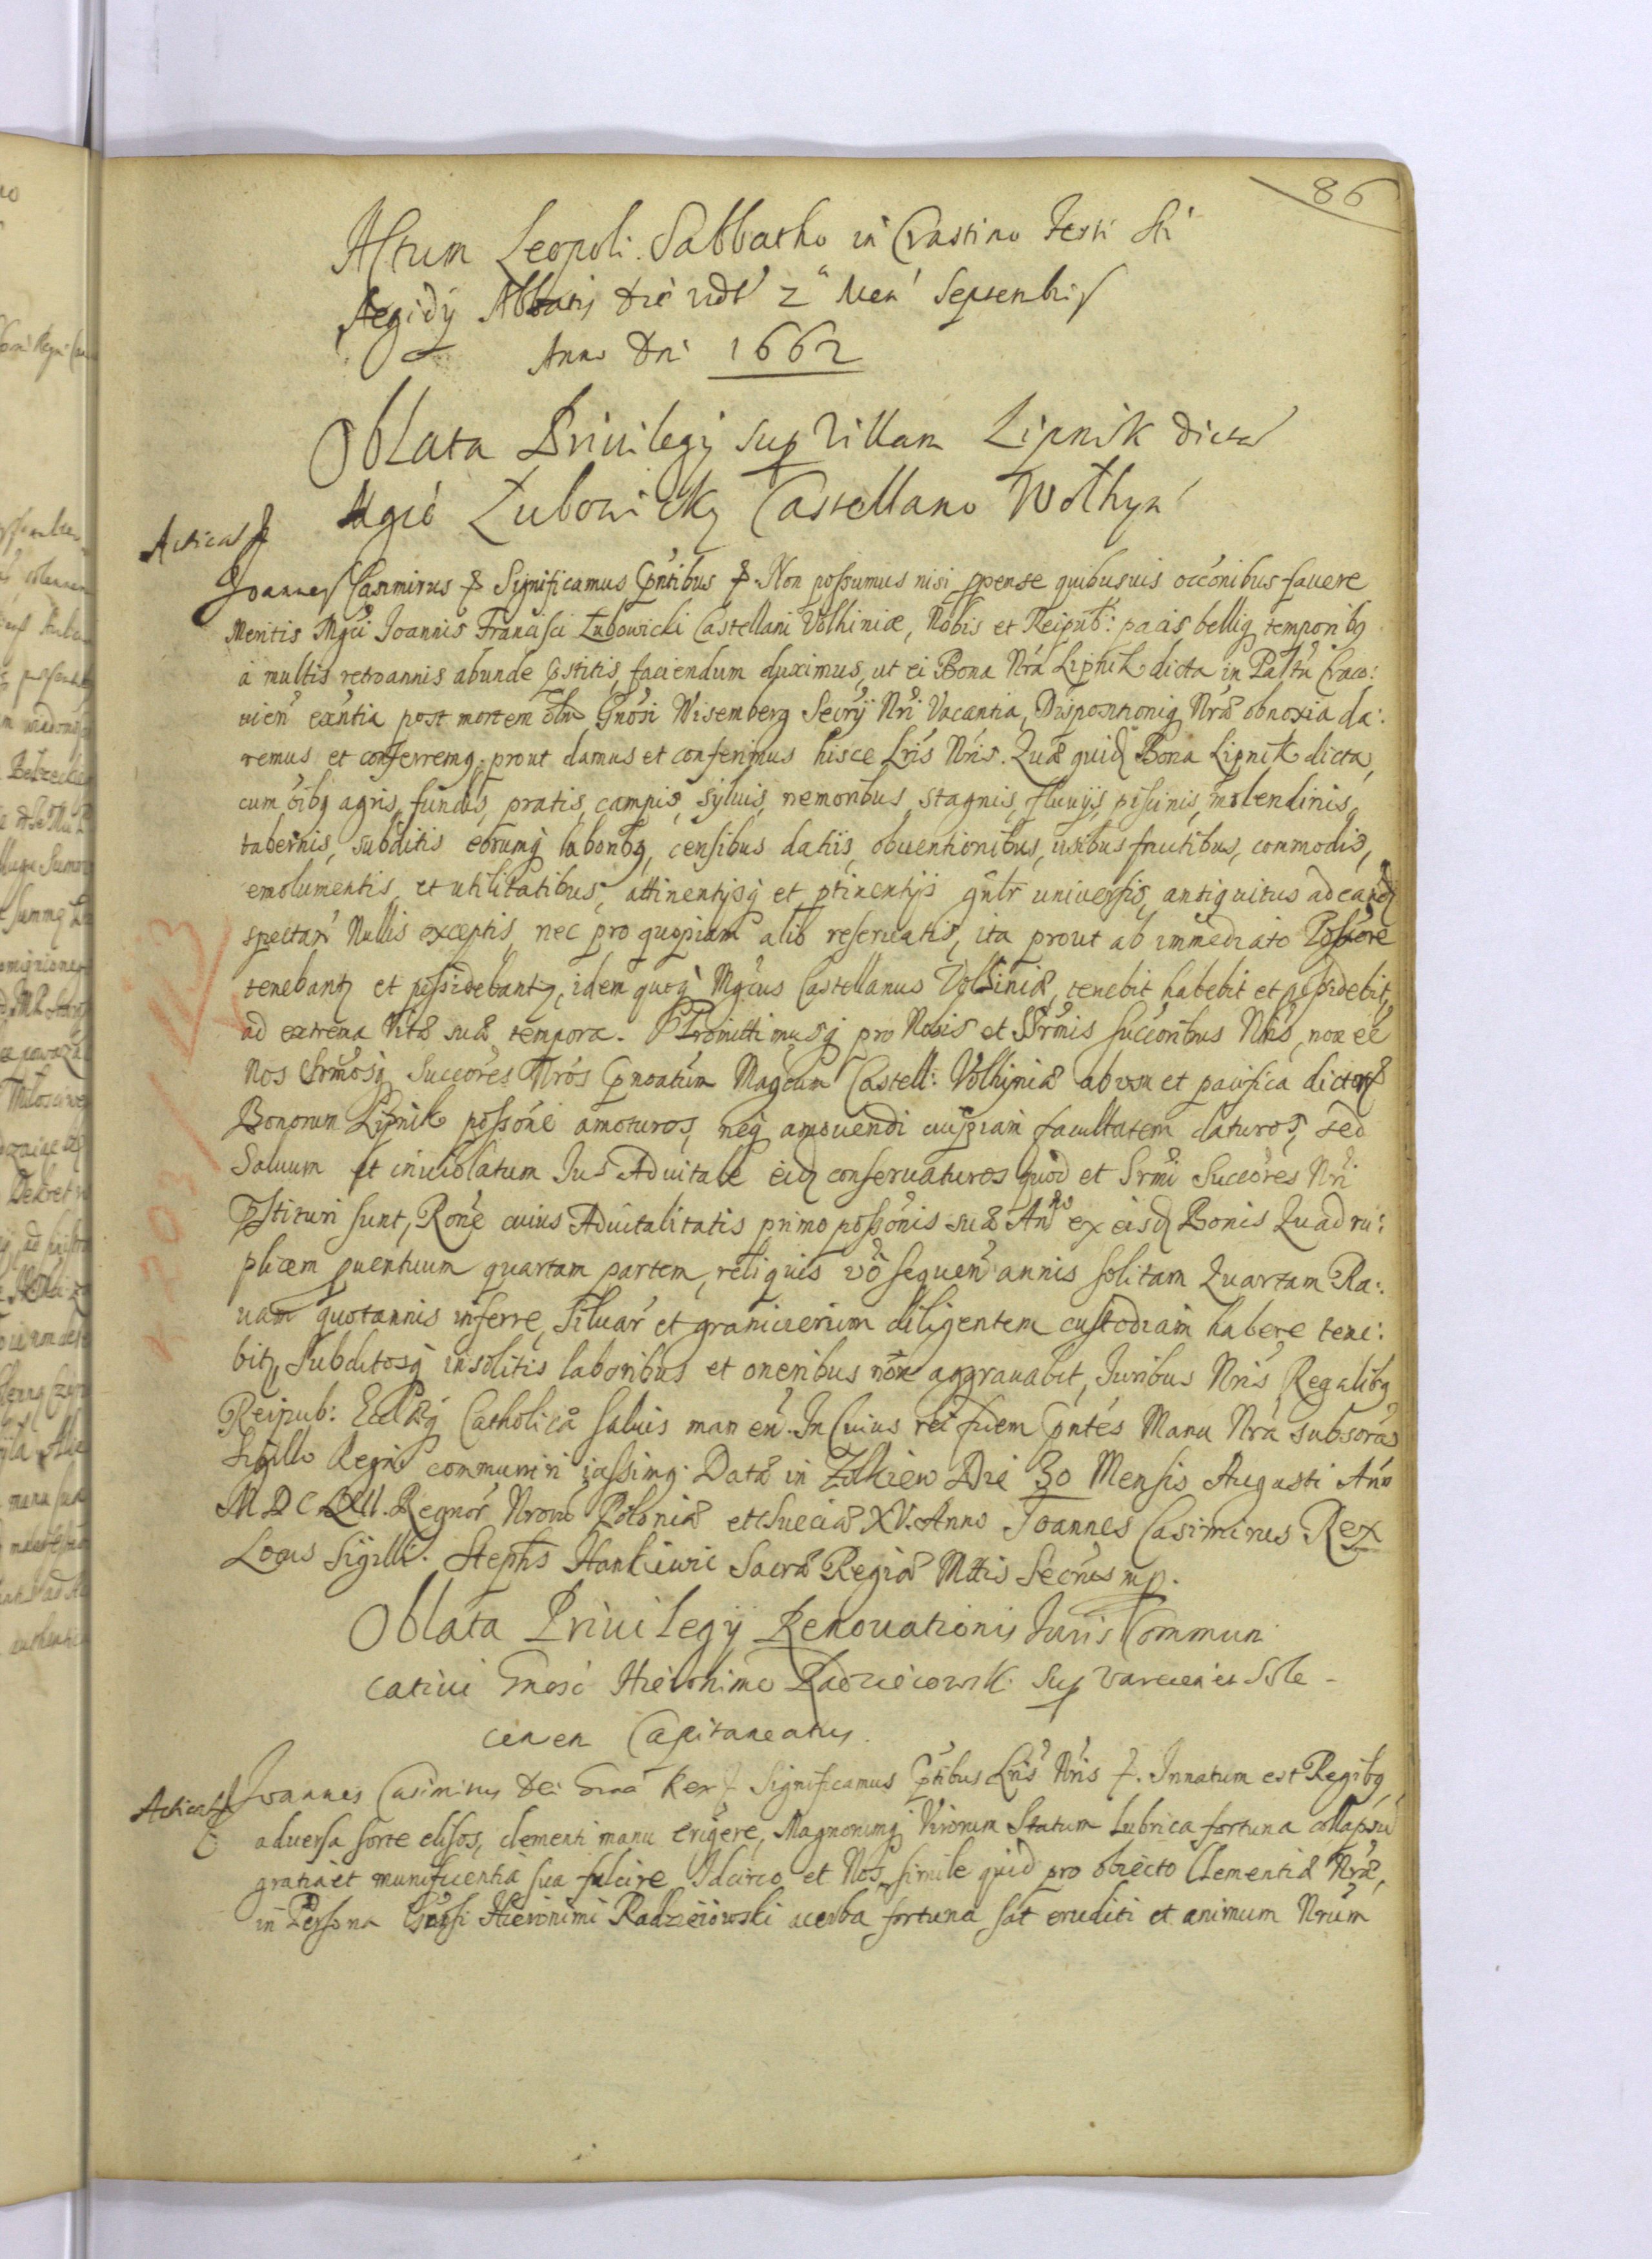 86
Actum Leopoli Sabbatho in Crastino Festi Sti
Aegidÿ Abbatis die vdt 2ª Men Septembris
Anno Dni 1662
Oblata Privilegÿ sup Villam Lipnik dicta
Mgco Łubowicky Castellano Wołhyn
Acticat
Joannes Casimirus & Significamus pntibus &. Non possumus nisi ppense quibusuis occonibus fauere
Meritis Mgci Joannis Francisci Łubowicki Castellani Volhiniæ, Nobis et Reipub: pacis belliq temporibq
à multis retroannis abunde pstitis, faciendum duximus, ut ei Bona Nra Lipnik dicta in Paltu Craco:
uien exntia post mortem olim Gnosi Wisemberg Secrÿ Nri Vacantia, Dispositioniq Nræ obnoxia da:
remus et conferremq, prout damus et conferimus hisce Lris Nris. Quæ quid Bona Lipnik dicta,
cum oibq agris, fundis, pratis, campis, syluis, nemoribus, stagnis, fluuijs, piscinis, molendinis,
tabernis, subditis eorumq laboribq, censibus datiis, obuentionibus, usibus fructibus, commodis,
emolumentis, et utilitatibus, attinentijsq et ptinentijs gnlr universis, antiquitus ad eand
spectan Nullis exceptis, nec pro quopiam alio reseruatis, ita prout ab immediato Possore
tenebantq et possidebantq, idem quoq Mgcus Castellanus Volhiniæ, tenebit habebit et possidebit,
ad extrema Vitæ suæ tempora. Promittimusq pro Nobis et Srmis succoribus Nris, non ee
Nos Srmosq Succores Nros pnoatum Magcum Castell: Volhyniæ ab usu et pacifica dictor
Bonorum Lipnik possone amoturos, neq amouendi cuipiam facultatem daturos, sed
Saluum et inuiolatum Jus Aduitale eid conseruaturos quod et Srmi Succores Nri
pstituri sunt, Rone cuius Aduitalitatis primo possonis suæ Anno ex eisd Bonis Quadru:
plicem puentuum quartam partem, reliquis vo sequen annis solitam Quartam Ra:
uam quotannis inferre, Siluar et granicierum diligentem custodiam habere tene:
bit, Subditosq insolitis laboribus et oneribus non aggrauabit, Juribus Nris Regalibq
Reipub: Ecclæq Catholicæ saluis manen. In Cuius rei fidem pntes Manu Nra subsctas
Sigillo Regni communiri iussimq. Datæ in Zołkiew Die 30 Mensis Augusti Anno
MDCLXII. Regnor Nrorum Poloniæ et Sueciæ XV. Anno Joannes Casimirus Rex
Locus Sigilli. Stephs Hankiewic Sacræ Regiæ Mttis Secrius mp.
Oblata Privilegÿ Renouationis Juris Commun
catiui Gnoso Hieronimo Radzieiowsk. sup Varcien et Sole-
cien en Capitaneatus.
Acticat
Joannes Casimirus Dei Graa Rex & Significamus pntibus Lris Nris &. Innatum est Regibq,
aduersa sorte elisos, clementi manu erigere, Magnorumq Virorum Statum lubrica fortuna collapsu
gratia et munificentia sua fulcire Idcirco et Nos simile quid pro obiecto Clementiæ Nræ,
in Persona Gnosi Hieronimi Radzieiowski acerba fortuna sat eruditi et animum Nrum